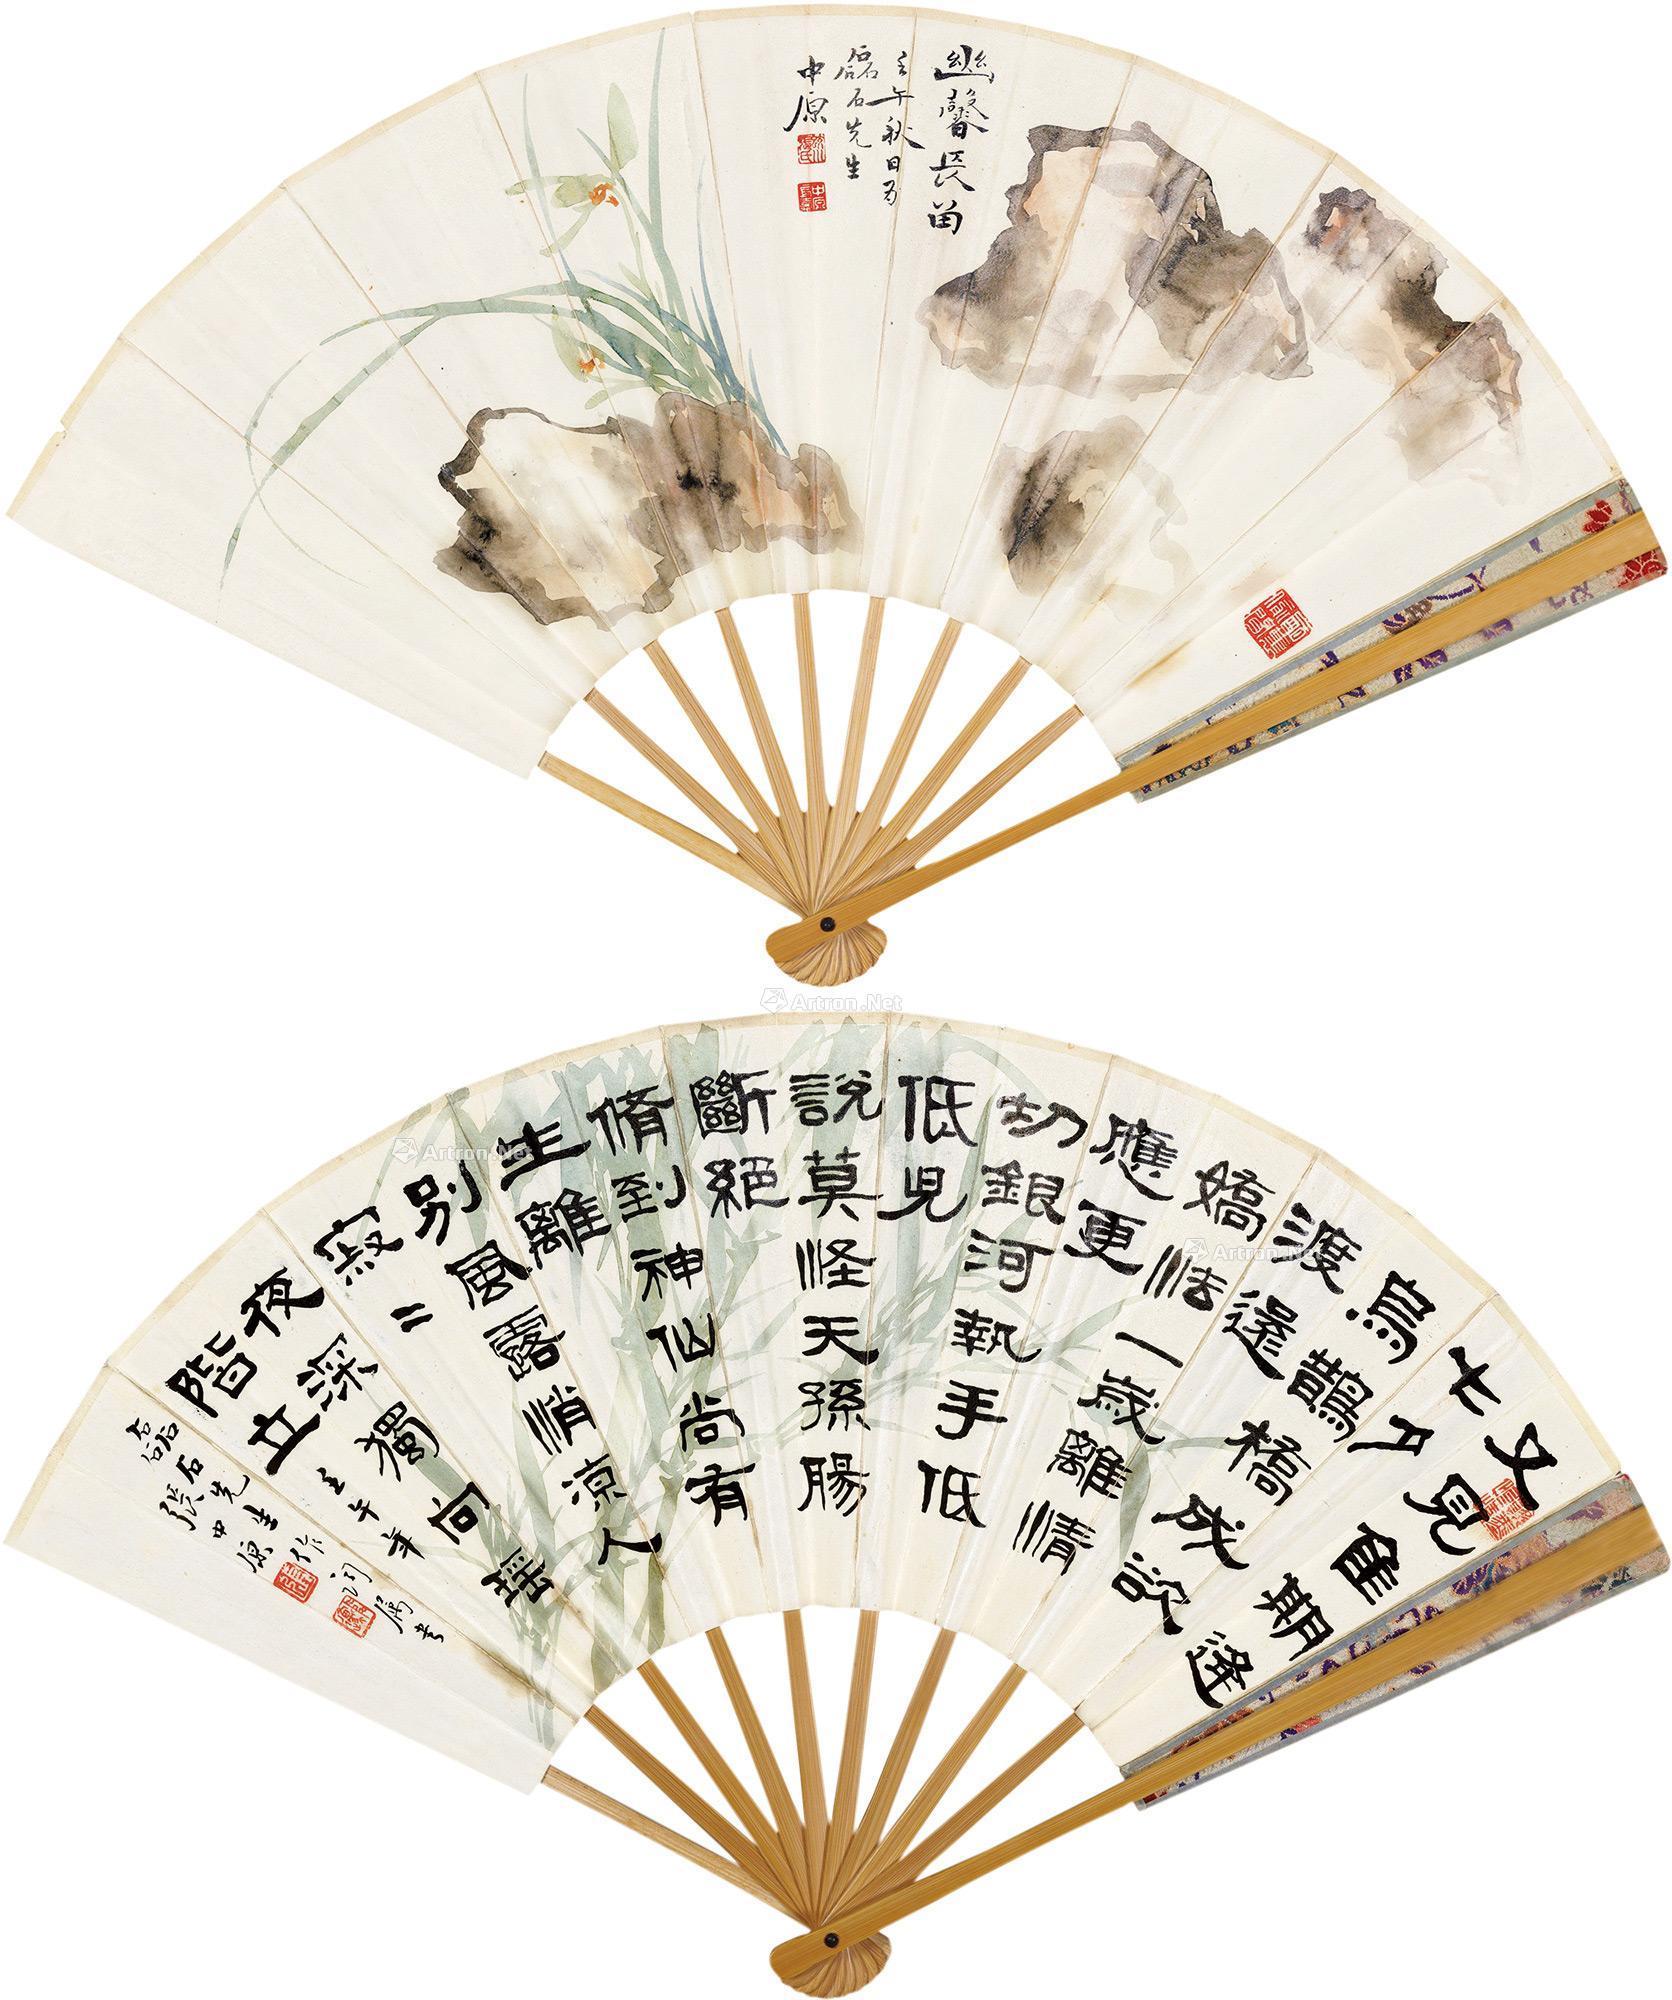 幽馨長留
壬午秋日爲
磊石先生
中原
又見佳期逢
七月
烏鵲橋成欲
渡還
嬌怯一歲離情
應更
切銀河執手低
低見
說莫怪天孫腸
斷絕
脩到神仙尚有
生離
別風露悄涼人
寂二
夜深獨向瑤
階立
壬午年
磊石先生作詞屬書
張中原
Artron.Net
Artron.Net
Artron.Net